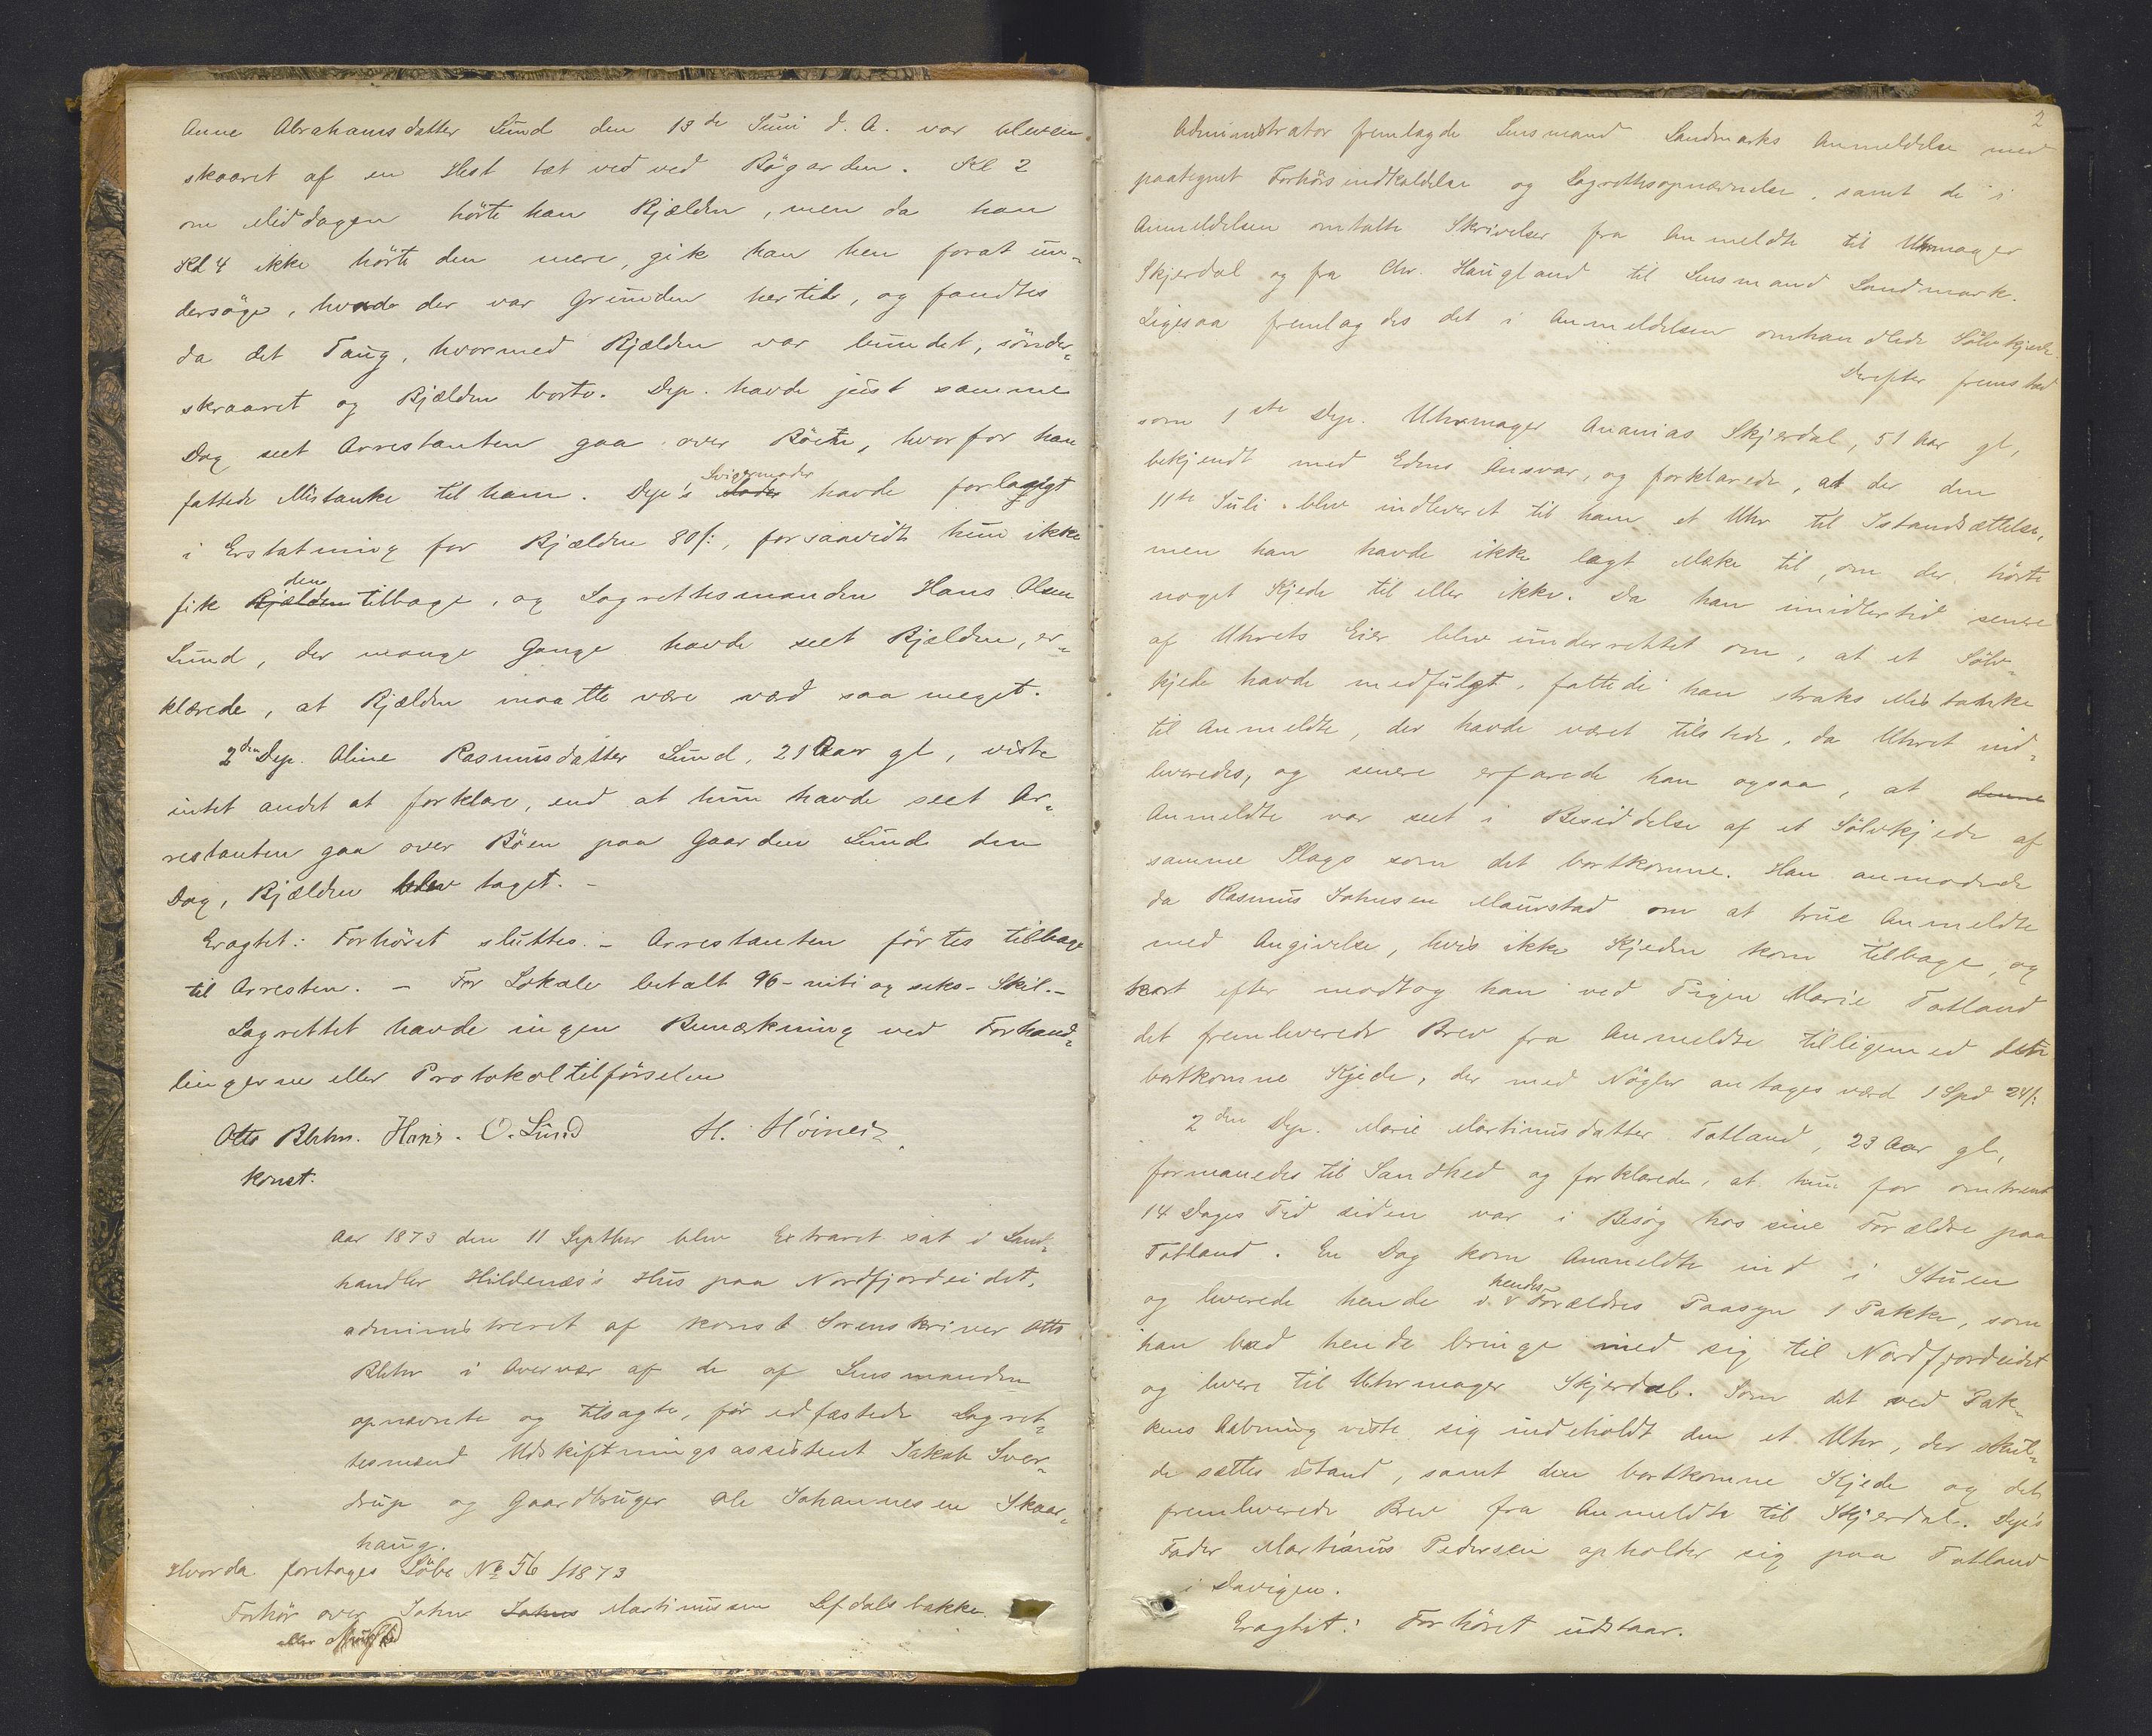 Anne Abrahamsdatter Lund den 13de Juni d. A. var bleven
skaaret af en Hest tæt ved ved Bögarden. Kl 2
om Middagen hörte han Bjælden, men da han
Kl 4 ikke hörte den mere, gik han hen forat un-
dersöge, hvad der var Grunden hertil, og fandtes
da det Taug, hvormed Bjælden var bundet, sönder-
skraaret og Bjælden borte. Dep. havde just samme
Dag seet Arrestanten gaa over Böen, hvorfor han
fattede Mistanke til ham. Dep's Svigermoder havde forlangt
i Erstatning for Bjælden 80 s:, forsaavidt hun ikke
fik den tilbage, og Lagrettesmanden Hans Olsen
Lund, der mange Gange havde seet Bjælden, er-
klærede, at Bjælden maatte være værd saa meget.
2den Dep. Oline Rasmusdatter Lund, 21 Aar gl, vidste
intet andet at forklare, end at hun havde seet Ar-
restanten gaa over Böen paa Gaarden Lund den
Dag, Bjælden blev taget. -
Eragtet: Forhöret sluttes. - Arrestanten förtes tilbage
til Arresten. - For Lokale betalt 96 - niti og seks - Skil. -
Lagrettet havde ingen Bemærkning ved Forhand-
lingerne eller Protokoltilförselen
Otto Blehr. Hans. O. Lund H. Höines
konst.
Aar 1873 den 11 Septbr blev Extraret sat i Land-
handler Hildenæs's Hus paa Nordfjordeidet,
administreret af konst Sorenskriver Otto
Blehr i Overvær af de af Lensmanden
opnævnte og tilsagte, för edfæstede Lagret-
tesmænd Udskiftningsassistent Jakob Sver-
drup og Gaardbruger Ole Johannesen Skaar-
haug.
Hvorda foretoges Löbe No 56 /1873
Forhör over John Johns Martinussen Lefdalsbakke
eller
2
Administrator fremlagde Lensmand Landmarks Anmeldelse med
paategnet Forhörsindkaldelse og Lagrettsopnævnelse, samt de i
Anmeldelsen omtalte Skrivelser fra Anmeldte til Uhrmager
Skjerdal og fra Chr. Haugland til Lensmand Landmark.
Ligesaa fremlagdes det i Anmeldelsen omhandlede Sölvkjede.
Derefter fremstod
som 1ste Dep. Uhrmager Ananias Skjerdal, 51 Aar gl,
bekjendt med Edens Ansvar, og forklarede, at der den
11te Juli blev indleveret til ham et Uhr til Istandsættelse,
men han havde ikke lagt Mærke til, om der hörte
noget Kjede til eller ikke. Da han imidlertid senere
af Uhrets Eier blev underrettet om, at et Sölv-
kjede havde medfulgt, fattede han straks Mistanke
til Anmeldte, der havde været tilstede, da Uhret ind-
leveredes, og senere erfarede han ogsaa, at denne
Anmeldte var seet i Besiddelse af et Sölvkjede af
samme Slags som det bortkomne. Han anmodede
da Rasmus Johnsen Maurstad om at true Anmeldte
med Angivelse, hvis ikke Kjeden kom tilbage, og
kort efter modtog han ved Pigen Marie Totland
det fremleverede Brev fra Anmeldte tilligemed det
bortkomne Kjede, der med Nögler antages værd 1 Spd 24 s:
2den Dep. Marie Martinusdatter Totland, 23 Aar gl,
formanedes til Sandhed og forklarede, at hun for omtrent
14 Dages Tid siden var i Besög hos sine Forældre paa
Totland. En Dag kom Anmeldte ind i Stuen
og leverede hende i hendes Forældres Paasyn 1 Pakke, som
han bad hende bringe med sig til Nordfjordeidet
og levere til Uhrmager Skjerdal. Som det ved Pak-
kens Aabning viste sig indeholdt den et Uhr, der skul-
de sættes istand, samt den bortkomne Kjede og det
fremleverede Brev fra Anmeldte til Skjerdal. Dep's
Fader Martinus Pedersen opholder sig paa Totland
i Davigen.
Eragtet: Forhöret udstaar.